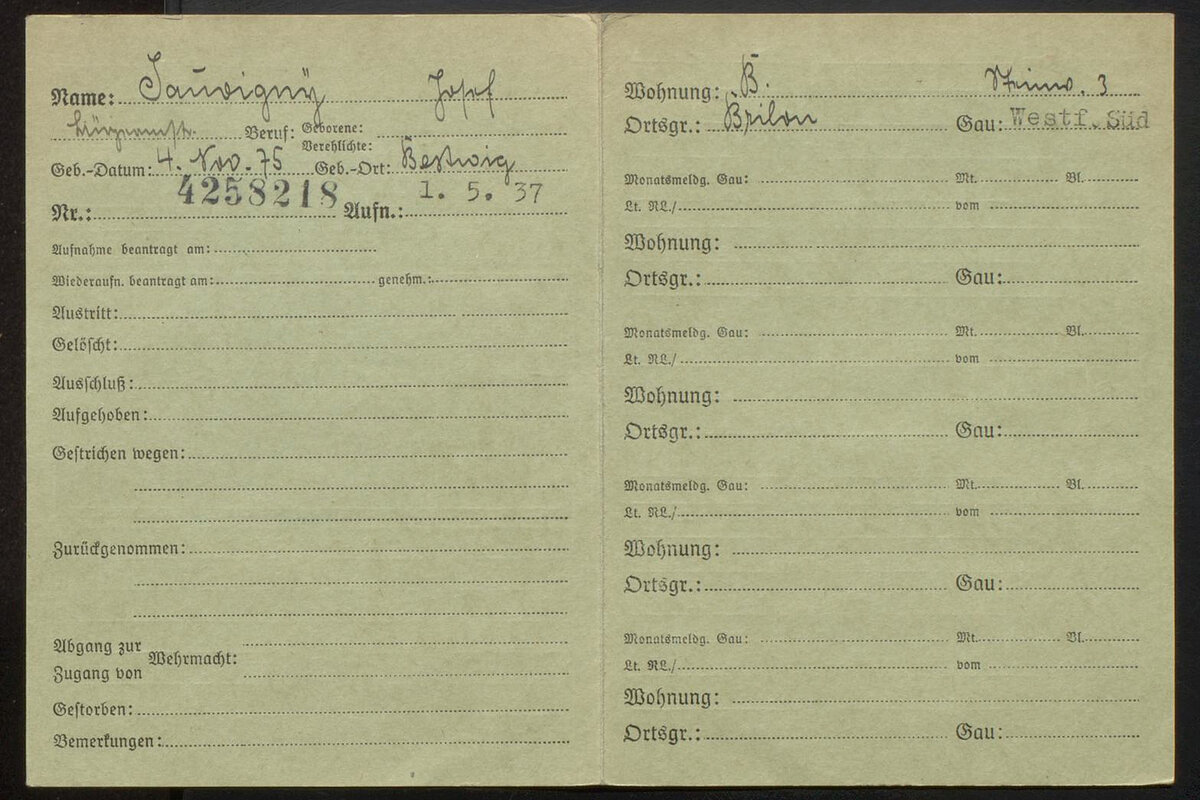 Name: Sauvigny Josef
Bürgermstr. Beruf: Geborene:
Verehlichte:
Geb.-Datum: 4. Nov. 75 Geb.-Ort: Bestwig
Nr.: 4258218 Aufn.: 1. 5. 37
Aufnahme beantragt am:
Wiederaufn. beantragt am: genehm.:
Austritt:
Gelöscht:
Ausschluß:
Aufgehoben:
Gestrichen wegen:
Zurückgenommen:
Abgang zur
Zugang von Wehrmacht:
Gestorben:
Bemerkungen:
Wohnung: B. 3
Ortsgr.: Brilon Gau: Westf. Süd
Monatsmeldg. Gau: Mt. Bl.
Lt. RL./ vom
Wohnung:
Ortsgr.: Gau:
Monatsmeldg. Gau: Mt. Bl.
Lt. RL./ vom
Wohnung:
Ortsgr.: Gau:
Monatsmeldg. Gau: Mt. Bl.
Lt. RL./ vom
Wohnung:
Ortsgr.: Gau:
Monatsmeldg. Gau: Mt. Bl.
Lt. RL./ vom
Wohnung:
Ortsgr.: Gau: